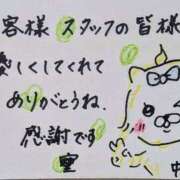 客様 スタッフの皆様
愛しくしてくれて
ありがとうね。
感謝です
中